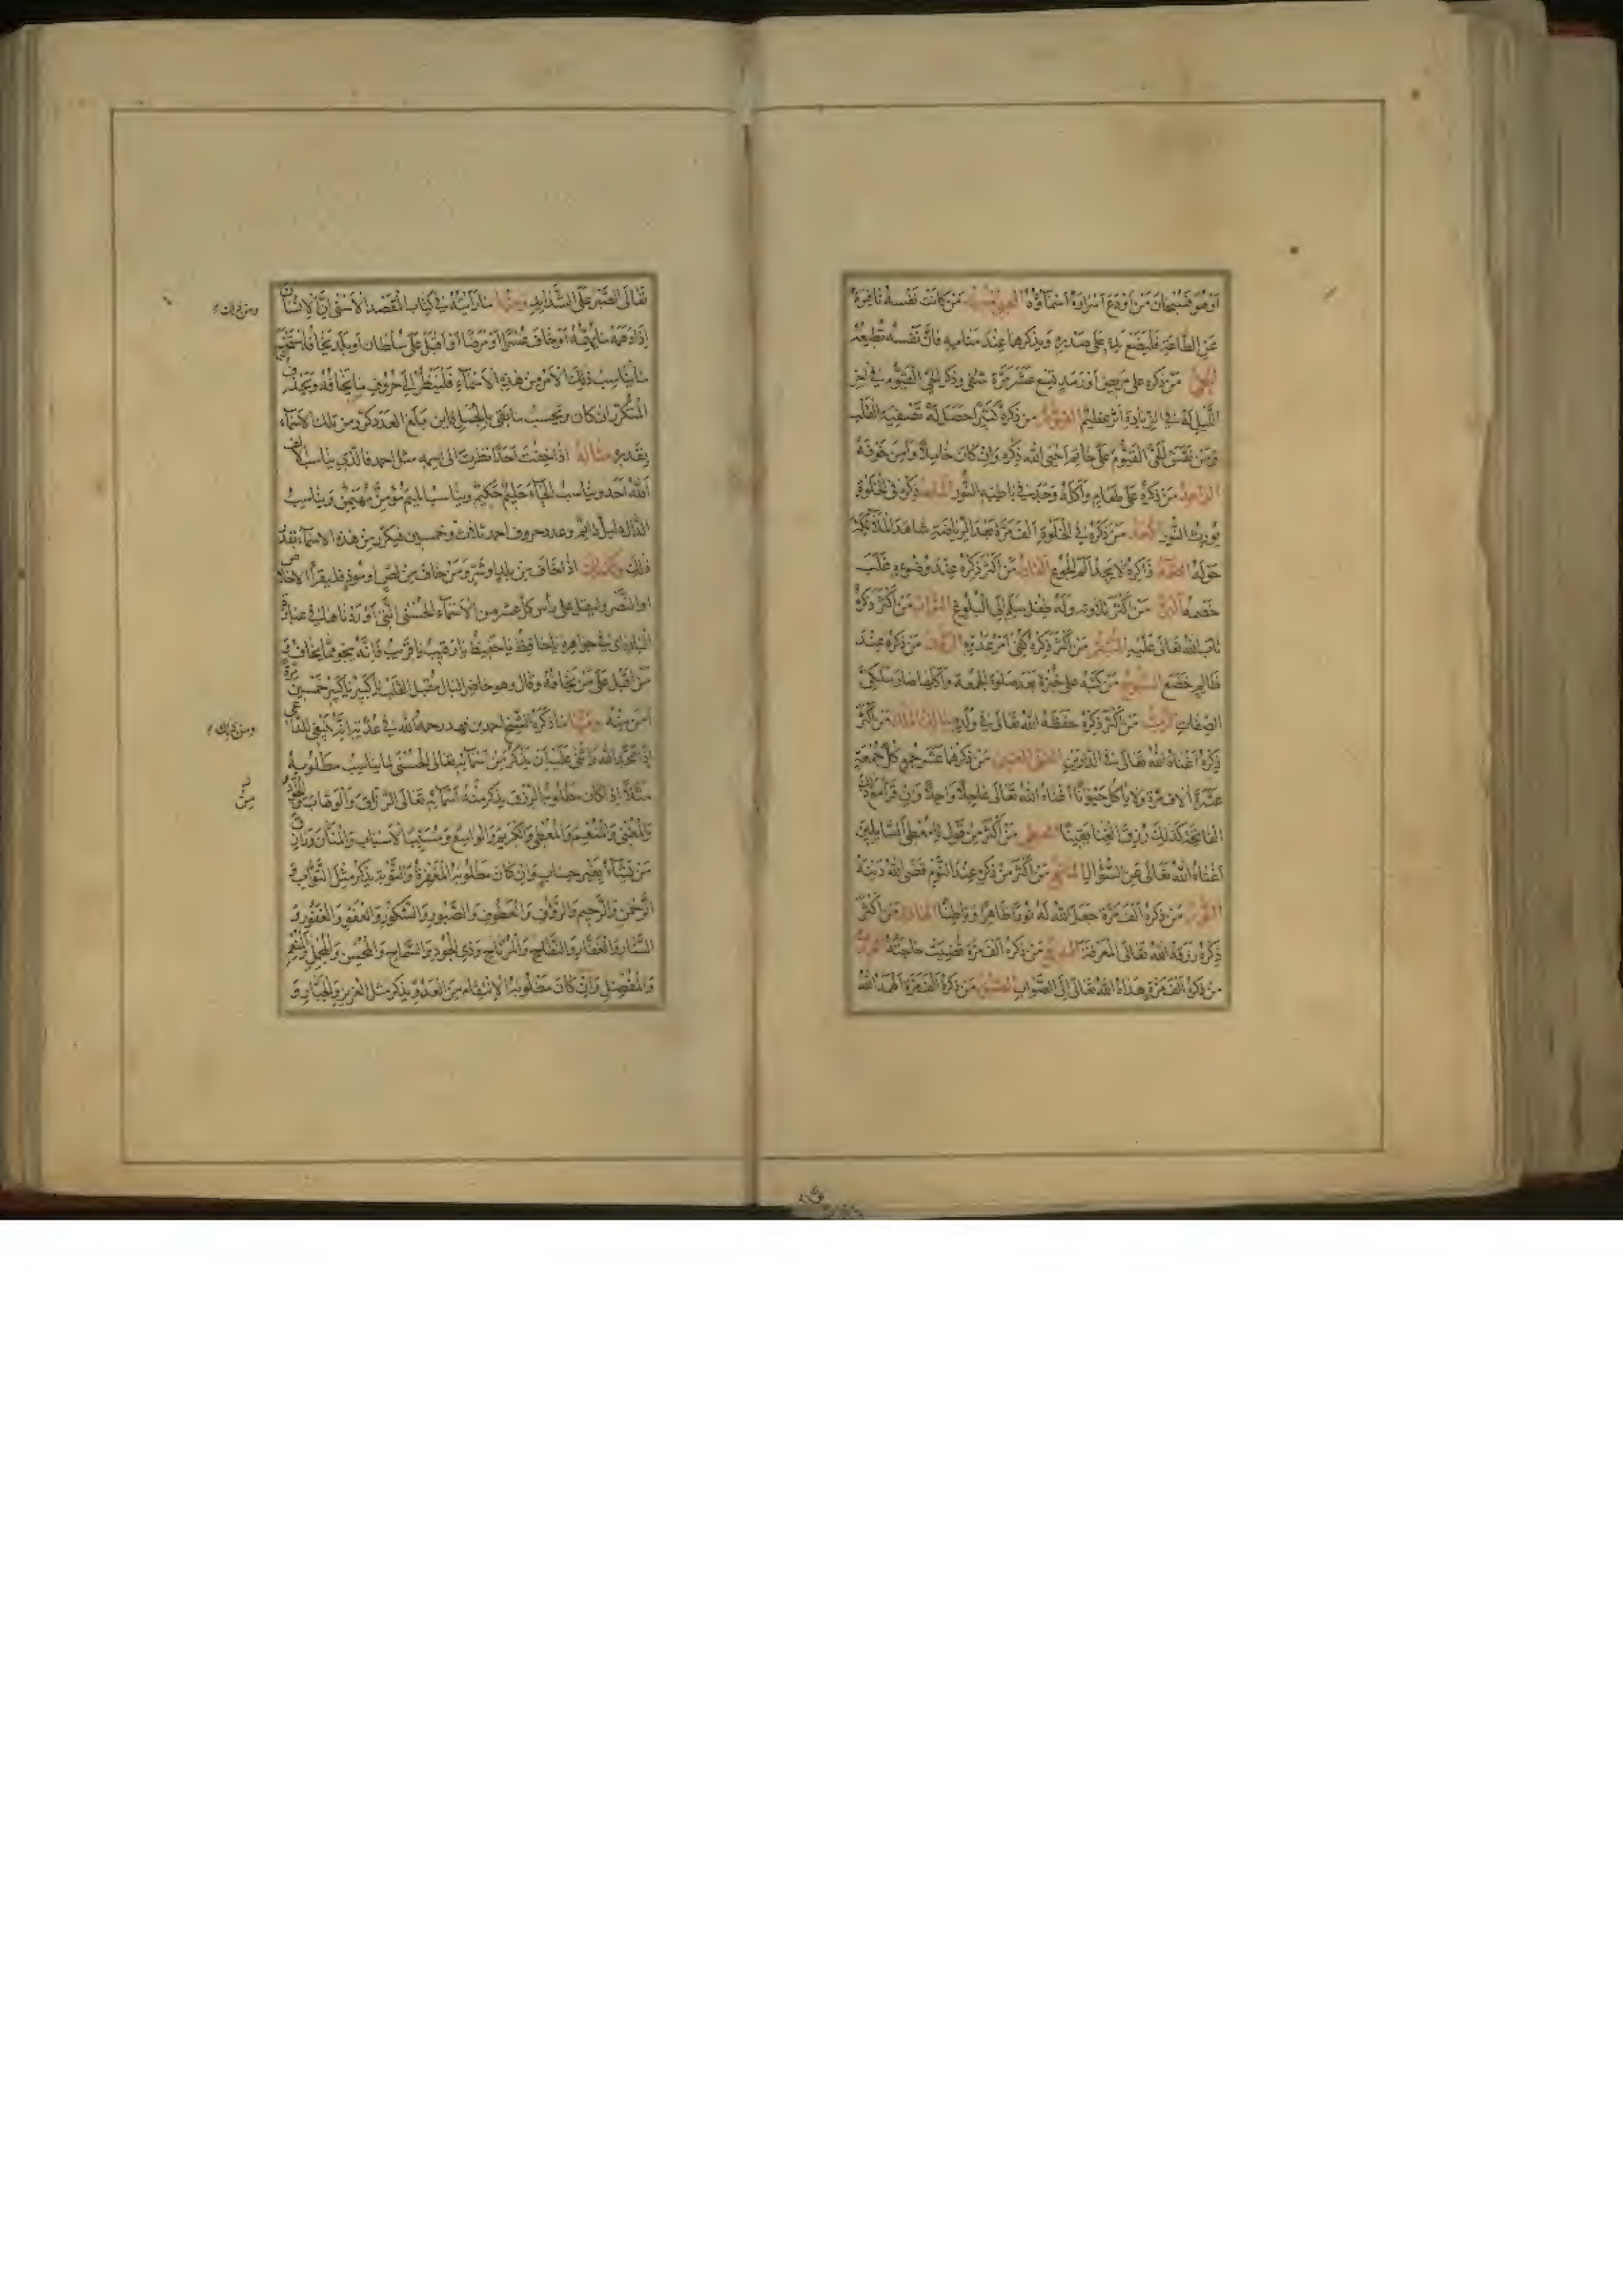 او هو فسبحان من اودع اسراره اسماؤه المحيي المميت من كانت نفسه نافرة
عن الطاعة فليضع يده على صدره ويذكرها عند منامه فان نفسه تطيعه
الحي من ذكره على مريض او رمد تسع عشر مرة شفى وذكر الحي القيوم في اخر
الليل له في الزيادة اثر عظيم القيوم من ذكره كثيرا حصل له تصفية القلب
ومن نقش الحي القيوم على خاتم احيى الله ذكره وان كان خاملا وامن خوفه
الواجد من ذكره على طعام واكله وجد في باطنه النور الماجد ذكره في الخلوة
يورث النور الاحد من ذكره في الخلوة الف مرة بعد الرياضة شاهد الملائكة
حوله الصمد ذاكره لا يجد الم الجوع القادر من اكثر ذكره عند وضوءه غلب
خصمه البر من اكثر تلاوته وله طفل سلم الى البلوغ التواب من اكثر ذكره
تاب الله تعالى عليه المنتقم من اكثر ذكره كفي امر عدوه الرؤف من ذكره عند
ظالم خضع السبوح من كتبه على خبزة بعد صلوة الجمعة واكلها صار ملكي
الصفات الرب من اكثر ذكره حفظه الله تعالى في ولده مالك الملك من اكثر
ذكره اغناه الله تعالى في الدارين الغني المغني من ذكرهما عشر جمع كل جمعة
عشرة الاف مرة ولا ياكل حيوانا اغناه الله تعالى عاجلا واجلا وان قرا مع ذلك
الفاتحة كذلك رزق الغنا يقينا المعطي من اكثر من قول يا معطي السايلين
اغناه الله تعالى عن السؤال المانع من اكثر من ذكره عند النوم قضى الله دينه
النور من ذكره الف مرة جعل الله له نورا ظاهرا وباطنا الهادي من اكثر
ذكره رزقه الله تعالى المعرفة البديع من ذكره الف مرة قضيت حاجته
من ذكره الف مرة هداه الله تعالى الى الصواب الصبور من ذكره الف مرة الهمه الله
تعالى الصبر على الشدايد ومنها ما رايته في كتاب المقصد الاسنى ان الانسان
اذا دهمه ما يهمه او خاف عسرا او مرضا او اقبل على سلطان او بلد يخافه استخرج
ما يناسب ذلك الامر من هذه الاسماء فلينظر الى حروف ما يخافه ويحذف
المتكرر ان كان ويحسب ما بقي بالجمل فاين بلغ العدد كرر من تلك الاسماء
بقدره مثاله اذا خفت احدا نظرت الى اسمه مثل احمد فالذي يناسب الالف
الله احد ويناسب الحاء حليم حكيم ويناسب الميم مؤمن مهيمن ويناسب
الدال دليل دايم وعدد حروف احمد ثلاث وخمسين فيكرر من هذه الاسماء بقدر
ذلك وكذلك اذا خاف من بلد او شر ومن خاف من لص او موذ فليقرا الاخلاص
او النصر وليقل على راس كل عشر من الاسماء الحسنى التي اوردناها
يا حافظ يا حفيظ يا رقيب يا قريب فانه ينجو مما يخاف و
من اقبل على من يخافه وقال وهو حاضر البال مقبل القلب يا كبير خمسين مرة
امن منه ومنها ما ذكره الشيخ احمد بن فهد رحمه الله في عدته انه ينبغي للداعي
اذا مجد الله واثنى عليه ان يذكر من اسمائه تعالى الحسنى ما يناسب مطلوبه
مثلا اذا كان مطلوبه الرزق يذكر من اسمائه تعالى الرزاق والوهاب والجواد
والمغني والمنعم والمعطي والكريم والواسع ومسبب الاسباب والمنان ورازق
من يشاء بغير حساب وان كان مطلوبه المغفرة والتوبة يذكر مثل التواب و
الرحمن والرحيم والرؤف والعطوف والصبور والشكور والعفو والغفور و
الستار والغفار والفتاح والمرتاح وذي الجود والسماح والمحسن والمجمل والمنعم
والمفضل وان كان مطلوبه الانتقام من العدو يذكر مثل العزيز والجبار و